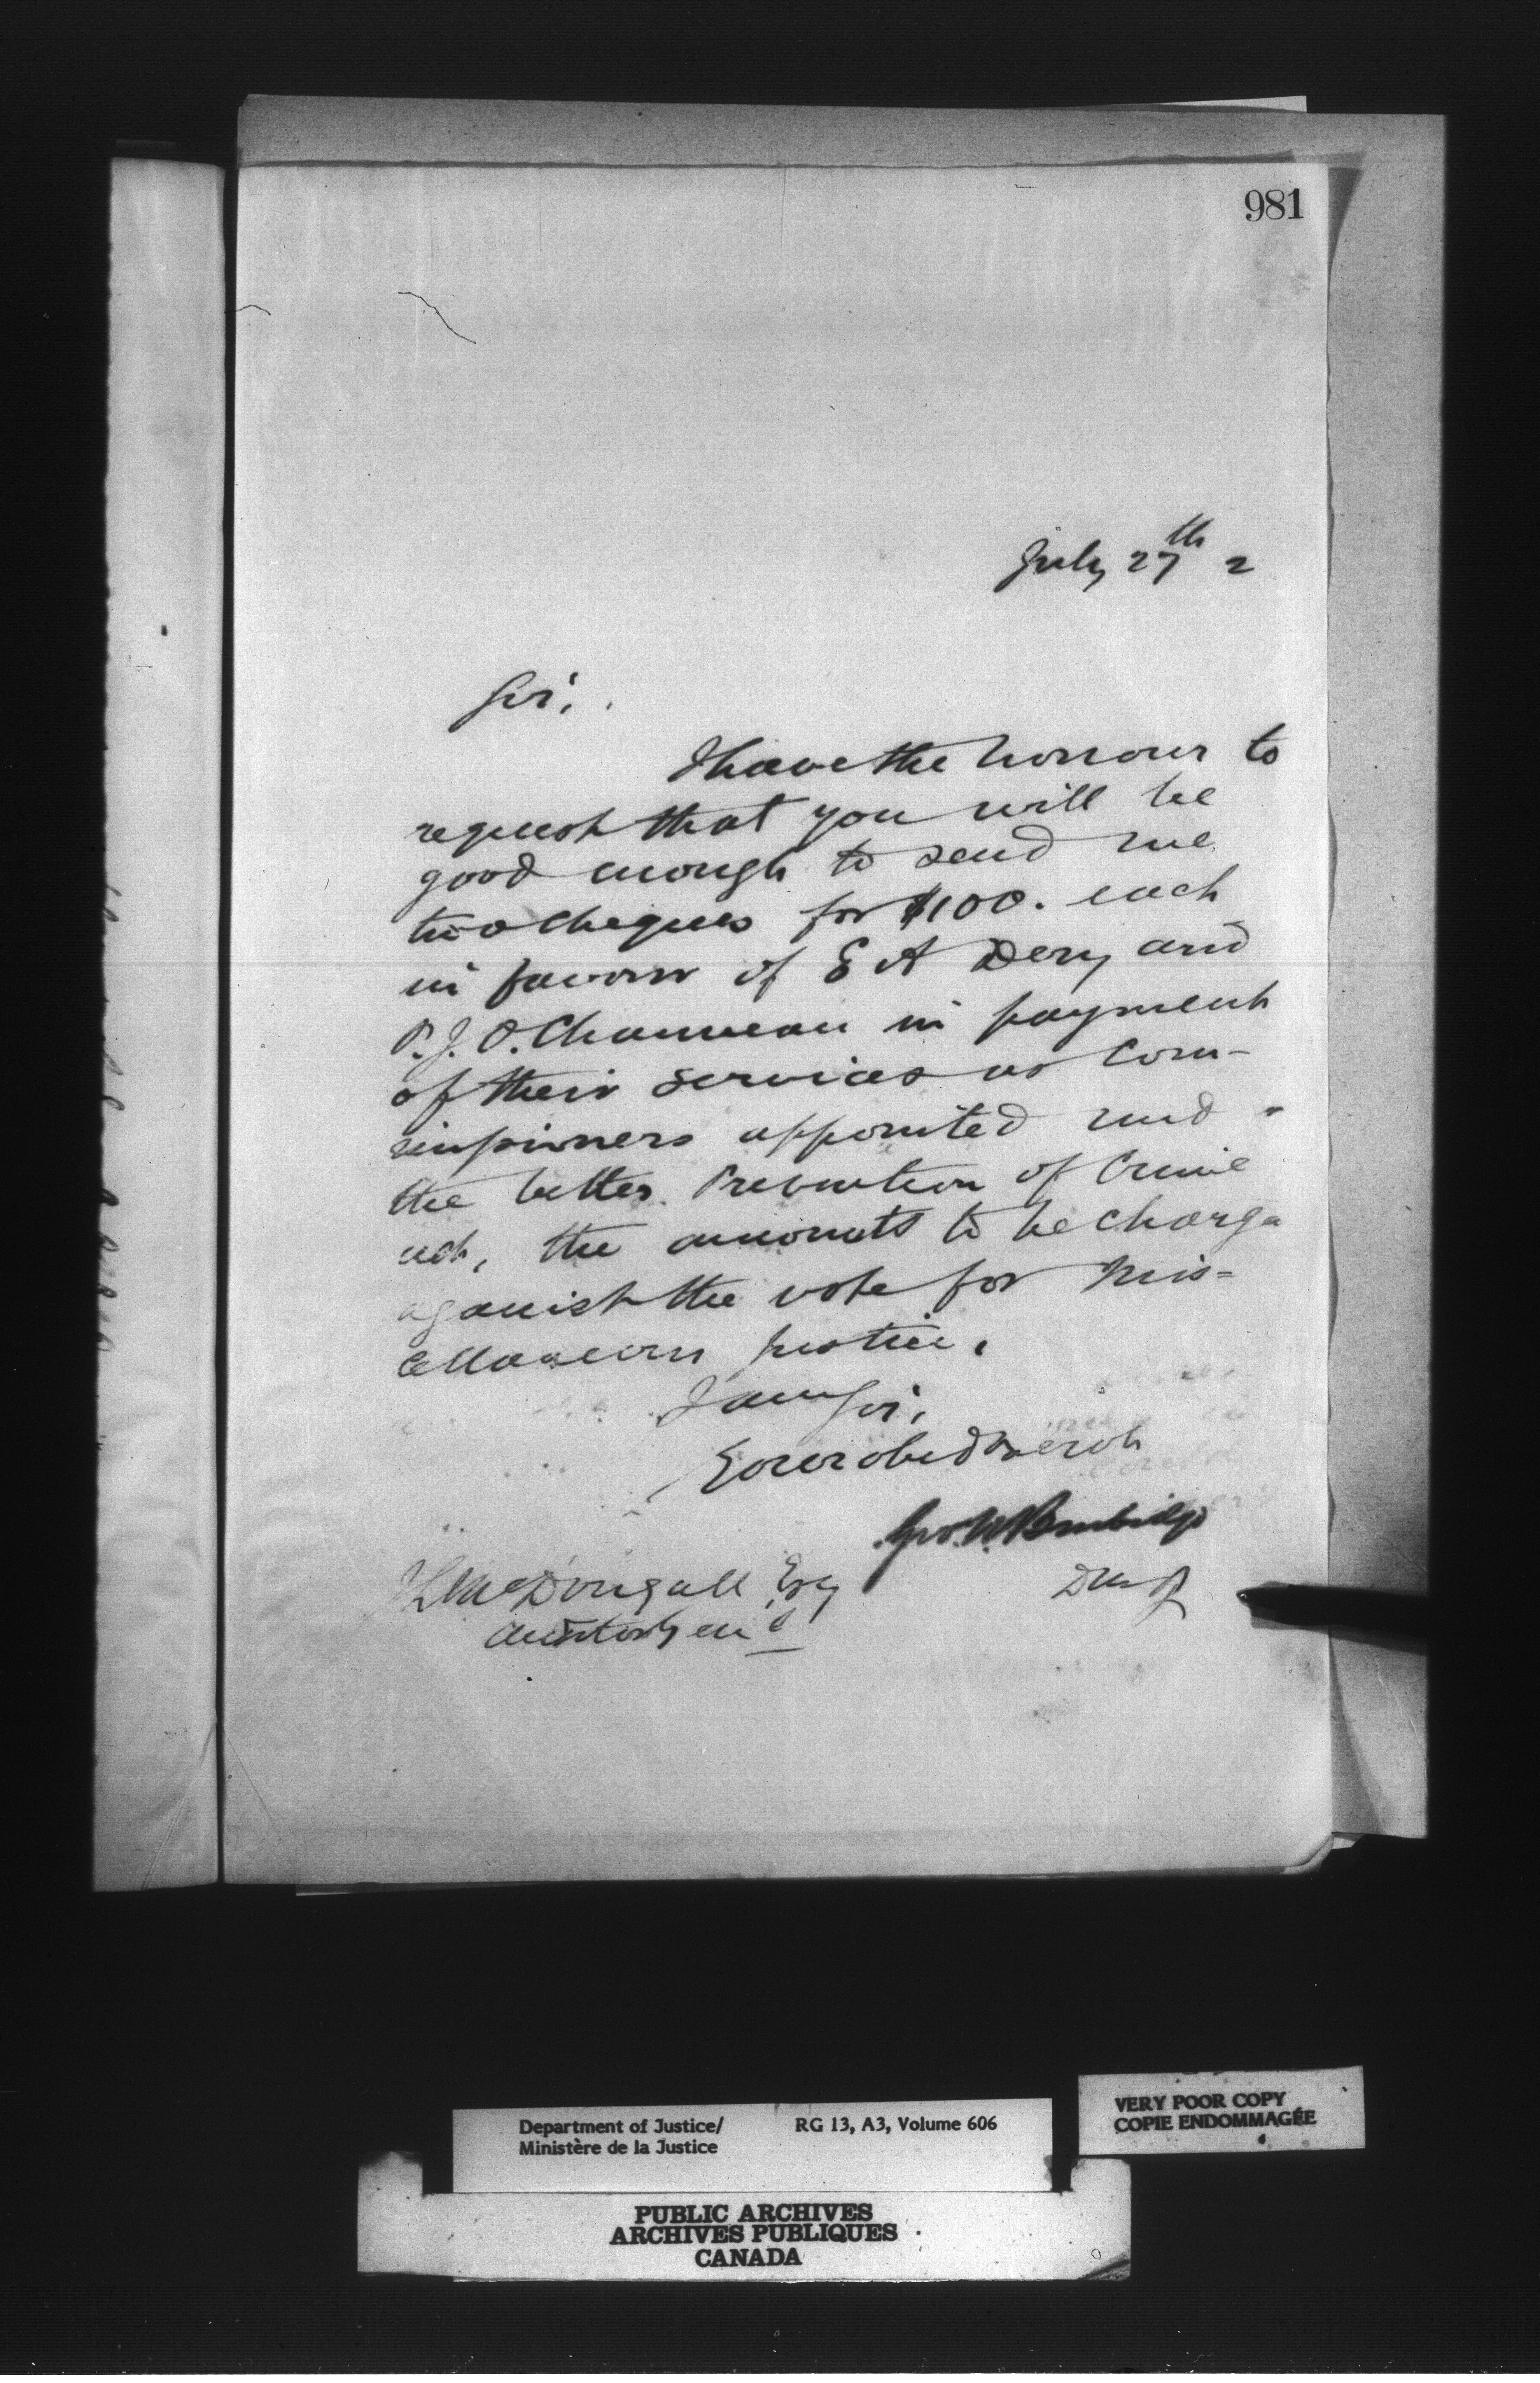 981
July 27th 2
Sir,
I have the honour to
request that you will be
good enough to send me
two cheques for $100. each
in favour of E A Dery and
P. J. O. Chauveau in payment
of their services as Com-
missioners appointed und
the better Prevention of Crime
act, the amounts to be charge
against the vote for Mis=
cellaneous Justice.
I am Sir,
Your obed serv
Geo. W. Burbidge
DMJ
J L McDougall Esq
Auditor Genl
Department of Justice/ RG 13, A3, Volume 606
Ministère de la Justice
VERY POOR COPY
COPIE ENDOMMAGÉE
PUBLIC ARCHIVES
ARCHIVES PUBLIQUES
CANADA